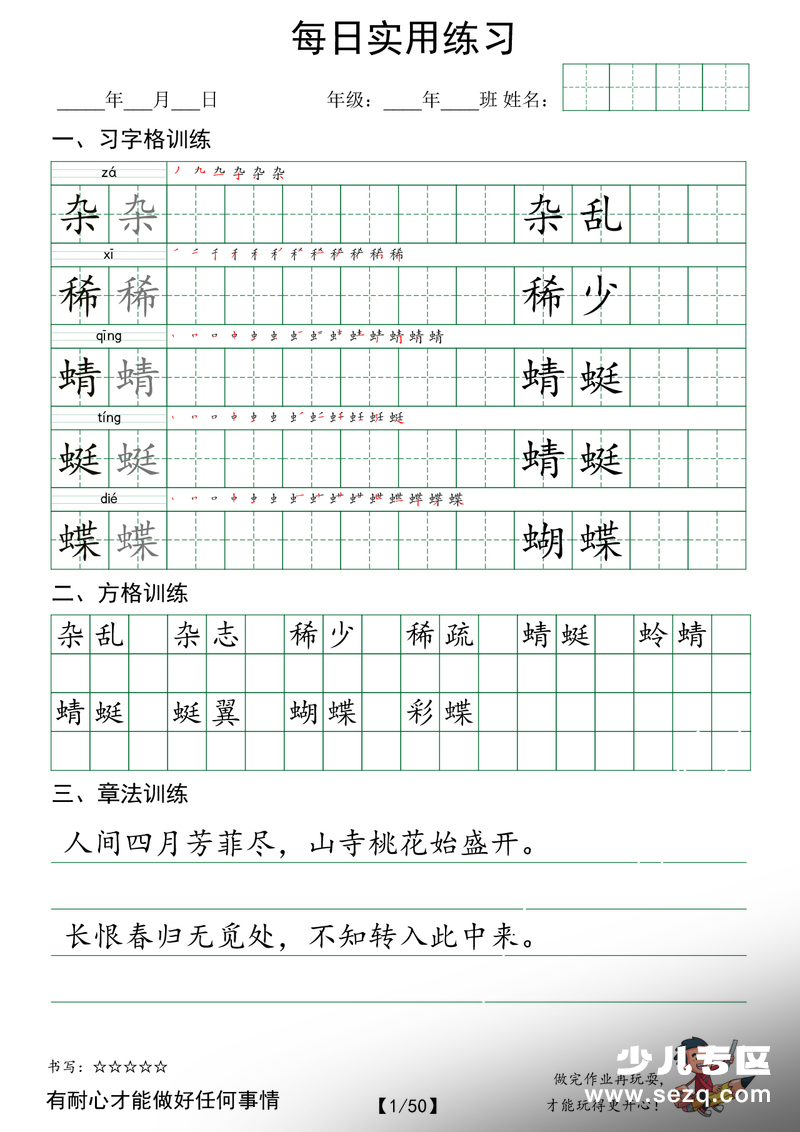 每日实用练习
_____年___月___日 年级：____年____班 姓名：
一、习字格训练
zá
杂 杂 杂 乱
xī
稀 稀 稀 少
qīng
蜻 蜻 蜻 蜓
tíng
蜓 蜓 蜻 蜓
dié
蝶 蝶 蝴 蝶
二、方格训练
杂乱 杂志 稀少 稀疏 蜻蜓 蛉蜻
蜻蜓 蜓翼 蝴蝶 彩蝶
三、章法训练
人间四月芳菲尽，山寺桃花始盛开。
长恨春归无觅处，不知转入此中来。
书写：☆☆☆☆☆
有耐心才能做好任何事情
【1/50】
做完作业再玩耍，
才能玩得更开心！
少儿专区
www.sezq.com